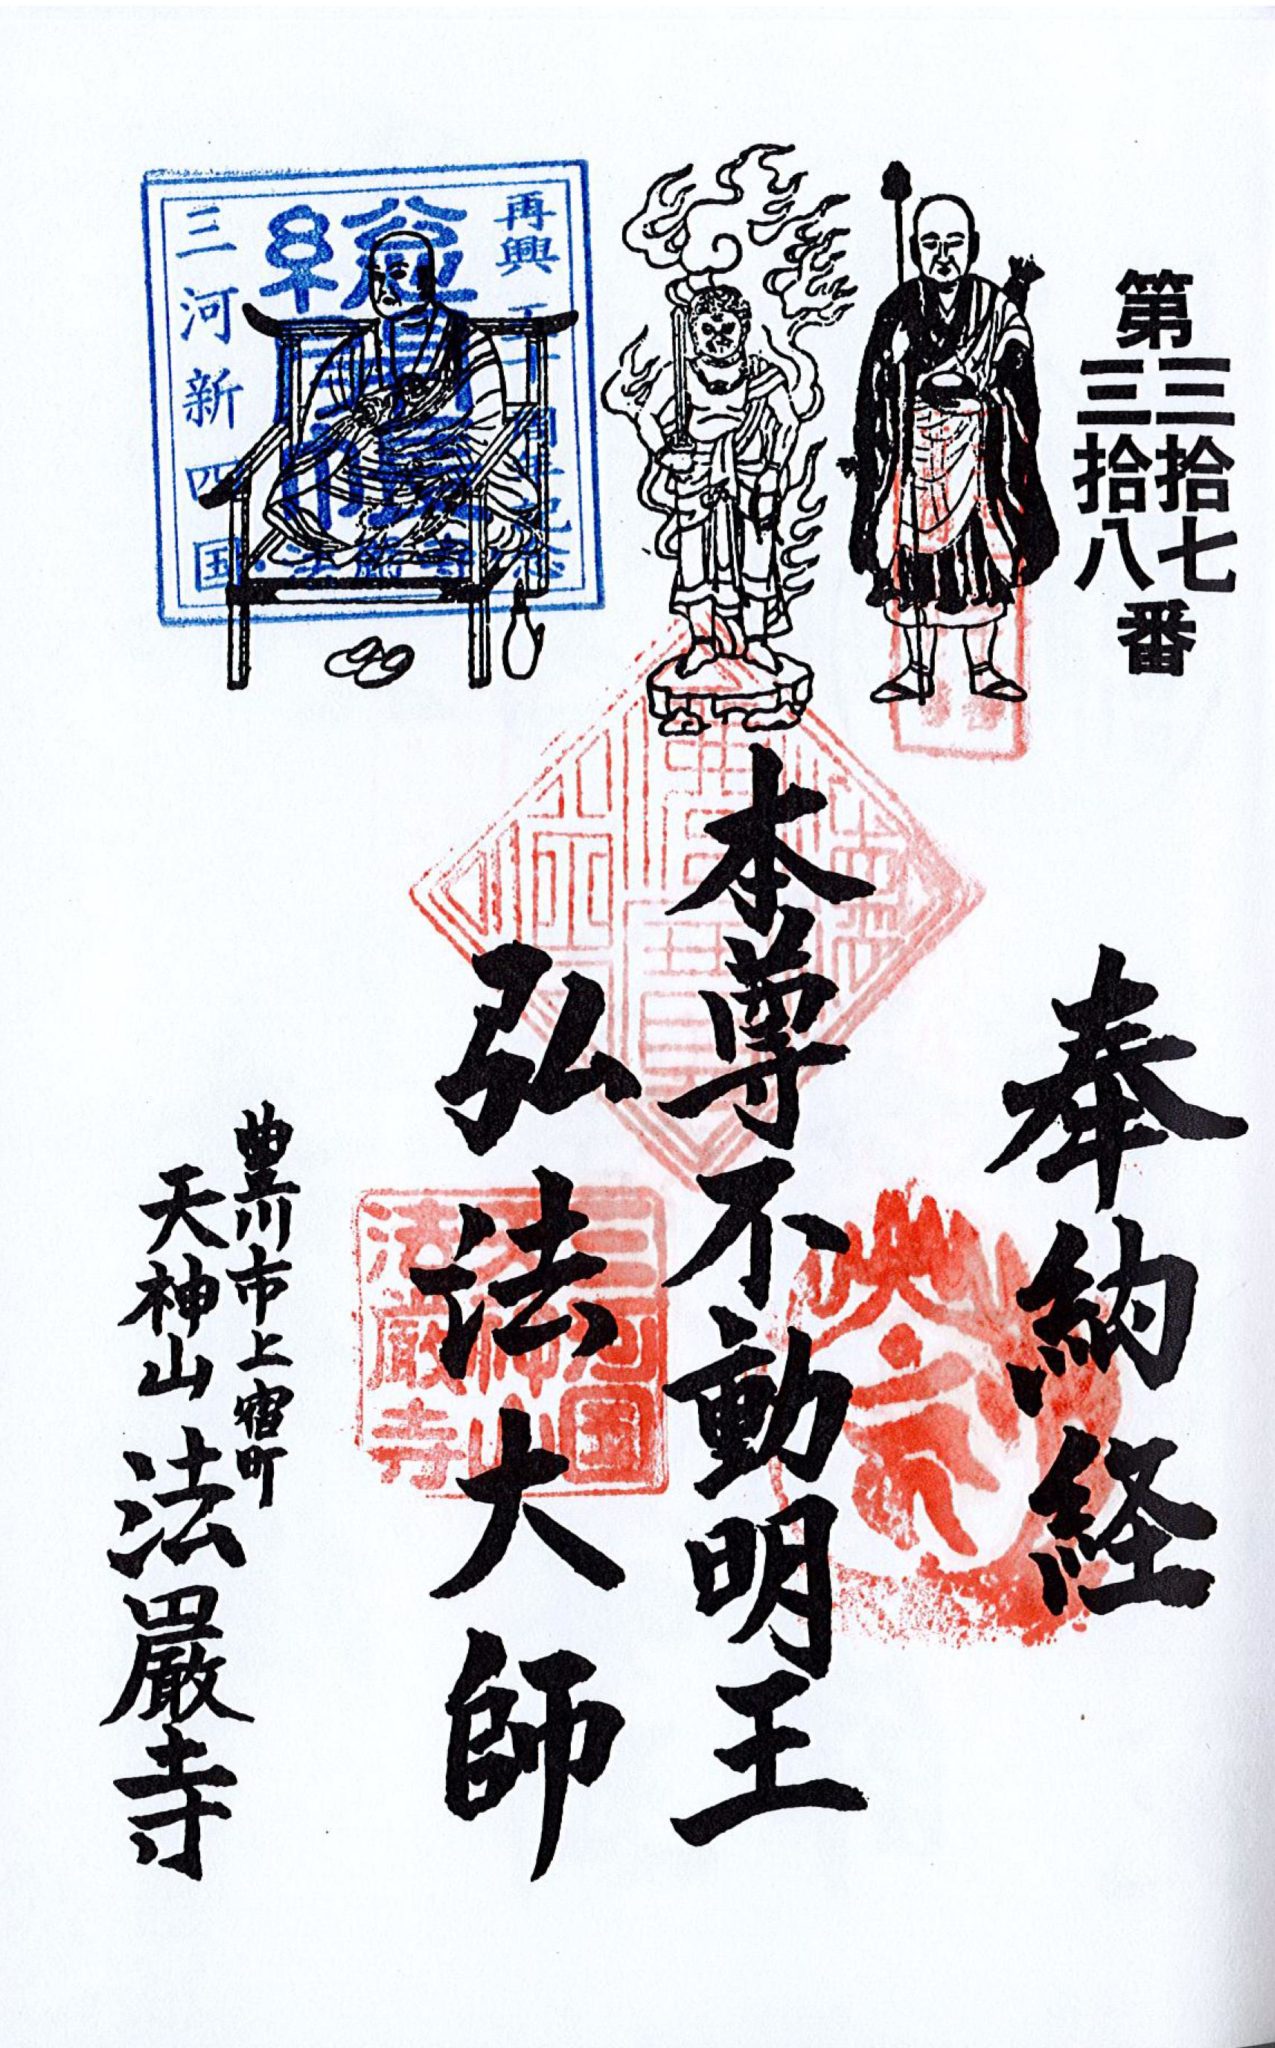 第三拾七
三拾八番
奉納経
本尊不動明王
弘法大師
豊川市上宿町
天神山法厳寺
再興五十周年記念
三河新四国
法厳寺
三河国
天神山
法厳寺